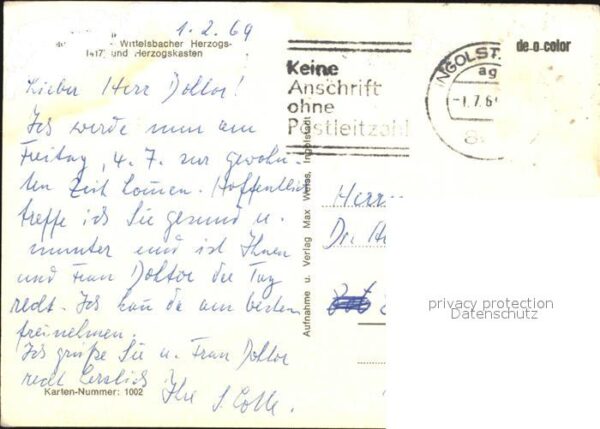 1.2.69
Wittelsbacher Herzogs-
1417) und Herzogskasten
de-o-color
Lieber Herr Doktor!
Ich werde nun am
Freitag, 4. 7. zur gewohn-
ten Zeit kommen. Hoffentlich
treffe ich Sie gesund u.
munter und ist Ihnen
und Frau Doktor der Tag
recht. Ich kann da am besten
freinehmen.
Ich grüße Sie u. Frau Doktor
recht herzlich
Ihr S.
Karten-Nummer: 1002
Keine
Anschrift
ohne
Postleitzahl
INGOLST
ag
-1.7.6
8
Aufnahme u. Verlag Max Weiss, Ingolstadt
Herrn
Dr.
privacy protection
Datenschutz